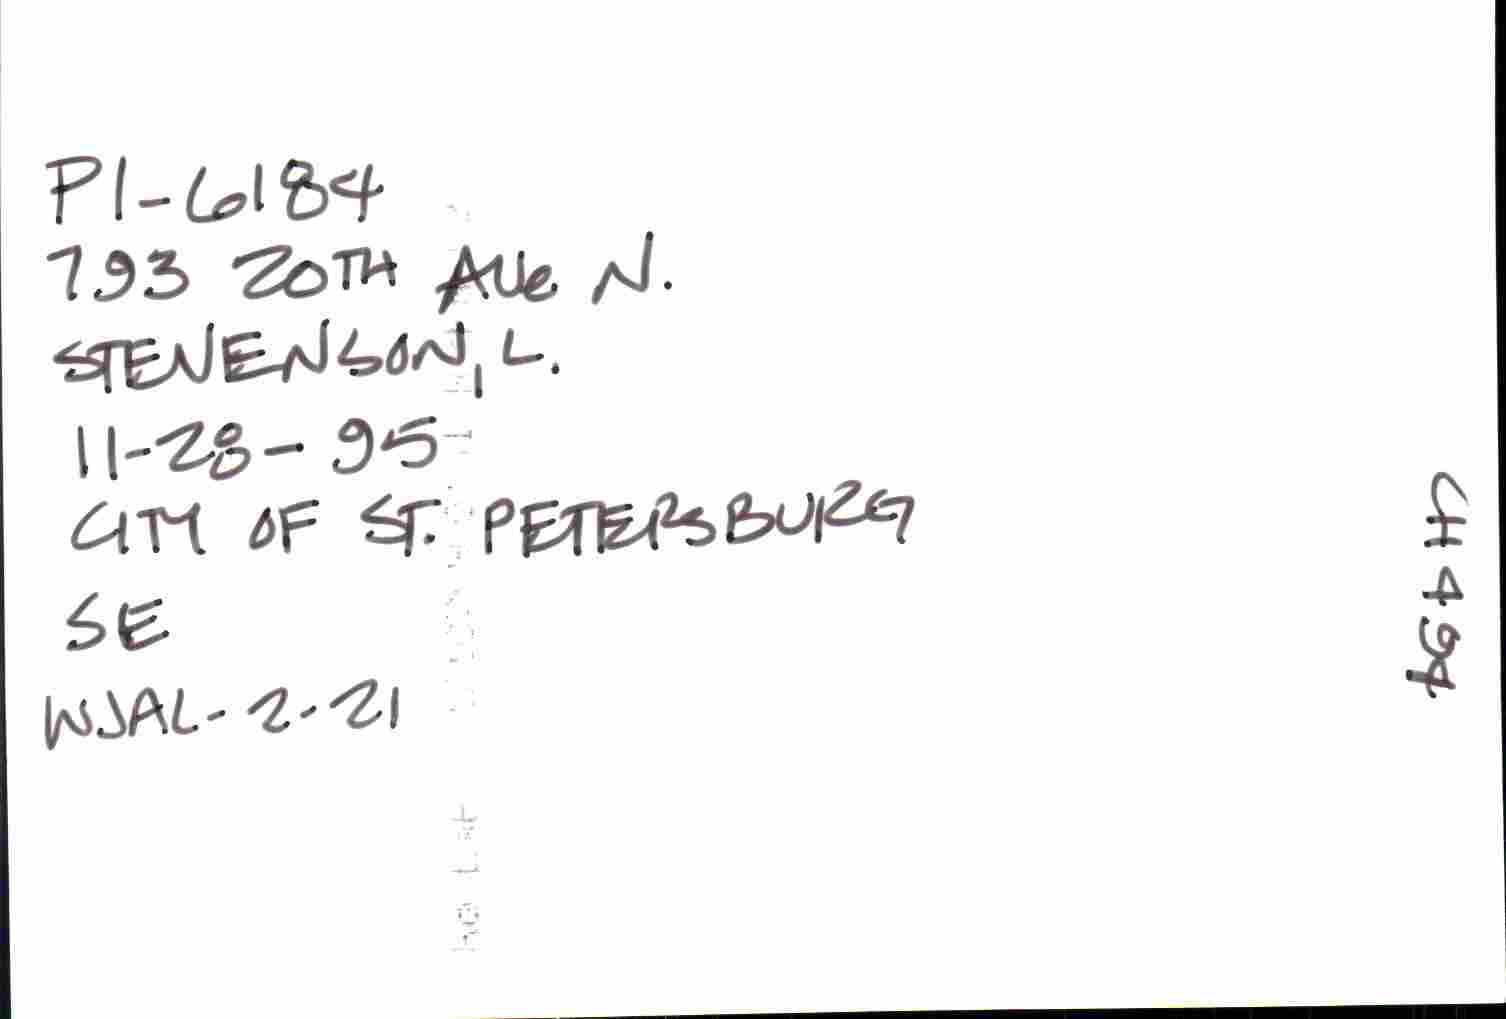 PI-6184
793 20TH Ave N.
STEVENSON, L.
11-28-95
CITY OF ST. PETERSBURG
SE
WJAL-2-21